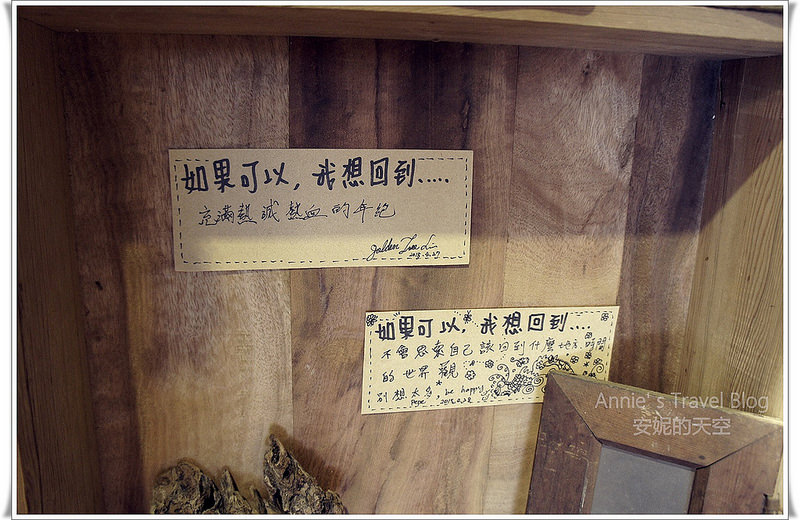 如果可以，我想回到.....
充滿熱誠熱血的年紀
2013.9.27
如果可以，我想回到....
不會思索自己該回到什麼地方、時間
的世界觀
別想太多，be happy
Pepe
Annie's Travel Blog
安妮的天空